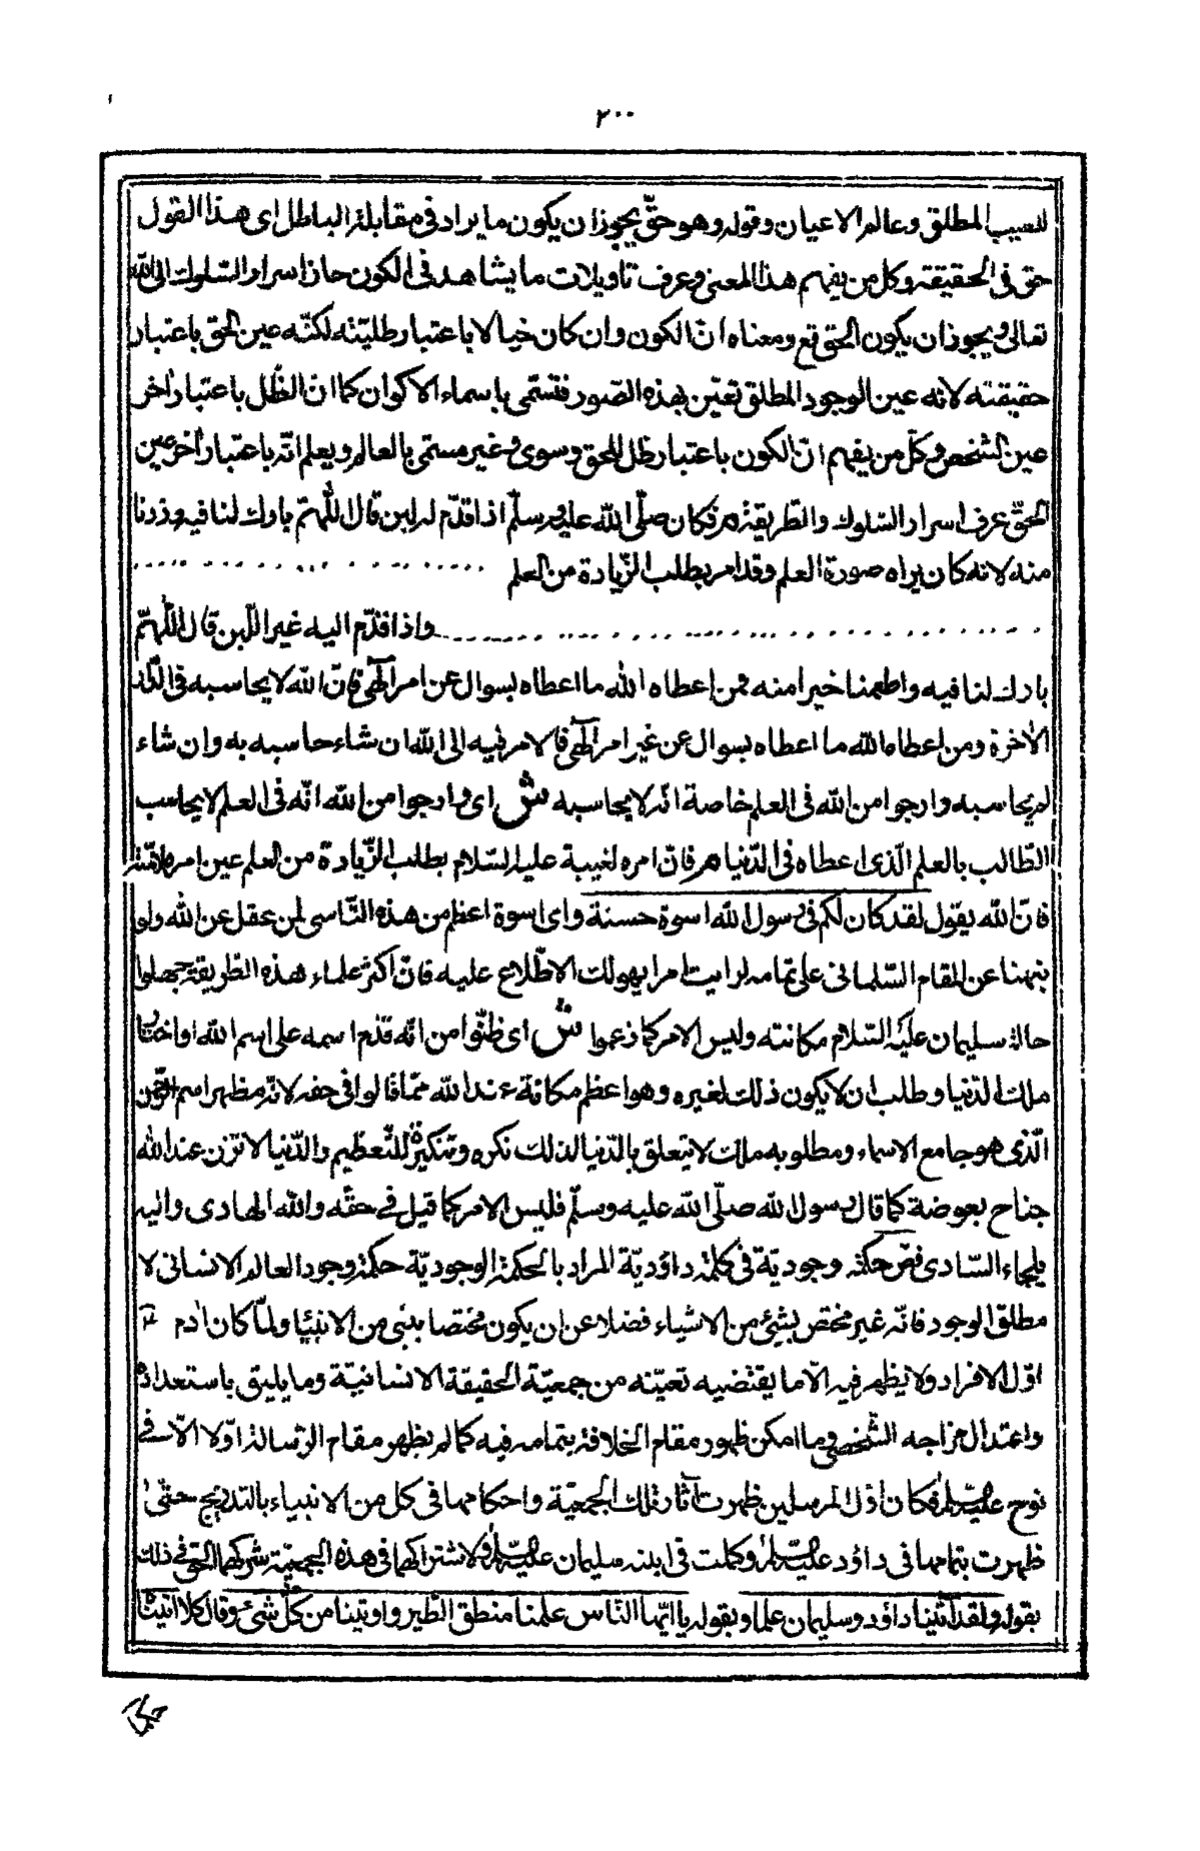 ٢٠٠
للسبب المطلق وعالم الاعيان وقوله وهو حقّ يجوز ان يكون ما يراد فى مقابلة الباطل اى هذا القول
حق فى الحقيقة وكل من يفهم هذا المعنى وعرف تاويلات ما يشاهد فى الكون حاز اسرار السّلوك الى الله
تعالى ويجوز ان يكون الحق تع ومعناه انّ الكون وان كان خيالا باعتبار ظليّته لكنّه عين الحق باعتبار
حقيقته لانه عين الوجود المطلق تعيّن بهذه الصّور فتسمّى باسماء الاكوان كما انّ الظّل باعتبار اخر
عين الشخص وكلّ من يفهم انّ الكون باعتبار ظل للحق وسوى وغير مسمّى بالعالم ويعلم انّه باعتبار اخر عين
الحقّ عرف اسرار السّلوك والطّريقة م فكان صلّى الله عليه وسلّم اذا قدّم له لبن قال اللّهمّ بارك لنا فيه وزدنا
منه لانه كان يراه صورة العلم وقد امر بطلب الزّيادة من العلم
واذا قدّم اليه غير اللّبن قال اللّهمّ
بارك لنا فيه واطعمنا خيرا منه فمن اعطاه الله ما اعطاه بسوال عن امر الٓهى فانّ الله لا يحاسبه فى الدّار
الاخرة ومن اعطاه الله ما اعطاه بسوال عن غير امر الٓهى فالامر فيه الى الله ان شاء حاسبه به وان شاء
لم يحاسبه وارجوا من الله فى العلم خاصة انّه لا يحاسبه ش اى وارجوا من الله انّه فى العلم لا يحاسب
الطّالب بالعلم الّذى اعطاه فى الدّنيا م فانّ امره لنبيه عليه السّلام بطلب الزّيادة من العلم عين امره لامّته
فانّ الله يقول لقد كان لكم فى رسول الله اسوة حسنة واى اسوة اعظم من هذه التّاسى لمن عقل عن الله ولو
نبهنا عن المقام السّليمانى على تمامه لرايت امرا يهولك الاطّلاع عليه فانّ اكثر علماء هذه الطّريقة جهلوا
حالة سليمان عليه السّلام مكانته وليس الامر كما زعموا ش اى ظنّوا من انّه قدّم اسمه على اسم الله او اختار
ملك الدّنيا وطلب ان لا يكون ذلك لغيره وهو اعظم مكانة عند الله ممّا قالوا فى حقه لانّه مظهر اسم الرّحمن
الّذى هو جامع الاسماء ومطلوبه ملك لا يتعلق بالدّنيا لذلك نكره وتنكيره للتّعظيم والدّنيا لا تزن عند الله
جناح بعوضة كما قال رسول الله صلّى الله عليه وسلّم فليس الامر كما قيل فى حقّه والله الهادى واليه
يلجاء السّادى فصّ حكمة وجوديّة فى كلمة داؤديّة المراد بالحكمة الوجوديّة حكمة وجود العالم الانسانى لا
مطلق الوجود فانّه غير مختص بشئ من الاشياء فضلا عن ان يكون مختصا بنبى من الانبيا ولمّا كان ادم
اوّل الافراد ولا يظهر فيه الّا ما يقتضيه تعيّنه من جمعيّة الحقيقة الانسانيّة وما يليق باستعداده
واعتدال مزاجه الشّخصى وما امكن ظهور مقام الخلافة بتمامه فيه كما لم يظهر مقام الرّسالة اوّلا الّا فى
نوح عليه السّلم فكان اوّل المرسلين ظهرت آثار تلك الجمعيّة واحكامها فى كل من الانبياء بالتدريج حتّى
ظهرت بتمامها فى داؤد عليه السّلم وكملت فى ابنه سليمان عليه السّلم ولاشتراكهما فى هذه الجمعيّة شركهما الحق فى ذلك
بقوله ولقد آتينا داؤد وسليمان علما وبقوله يا ايّها النّاس علمنا منطق الطّير واوتينا من كلّ شئ وقال كلا اتيناه